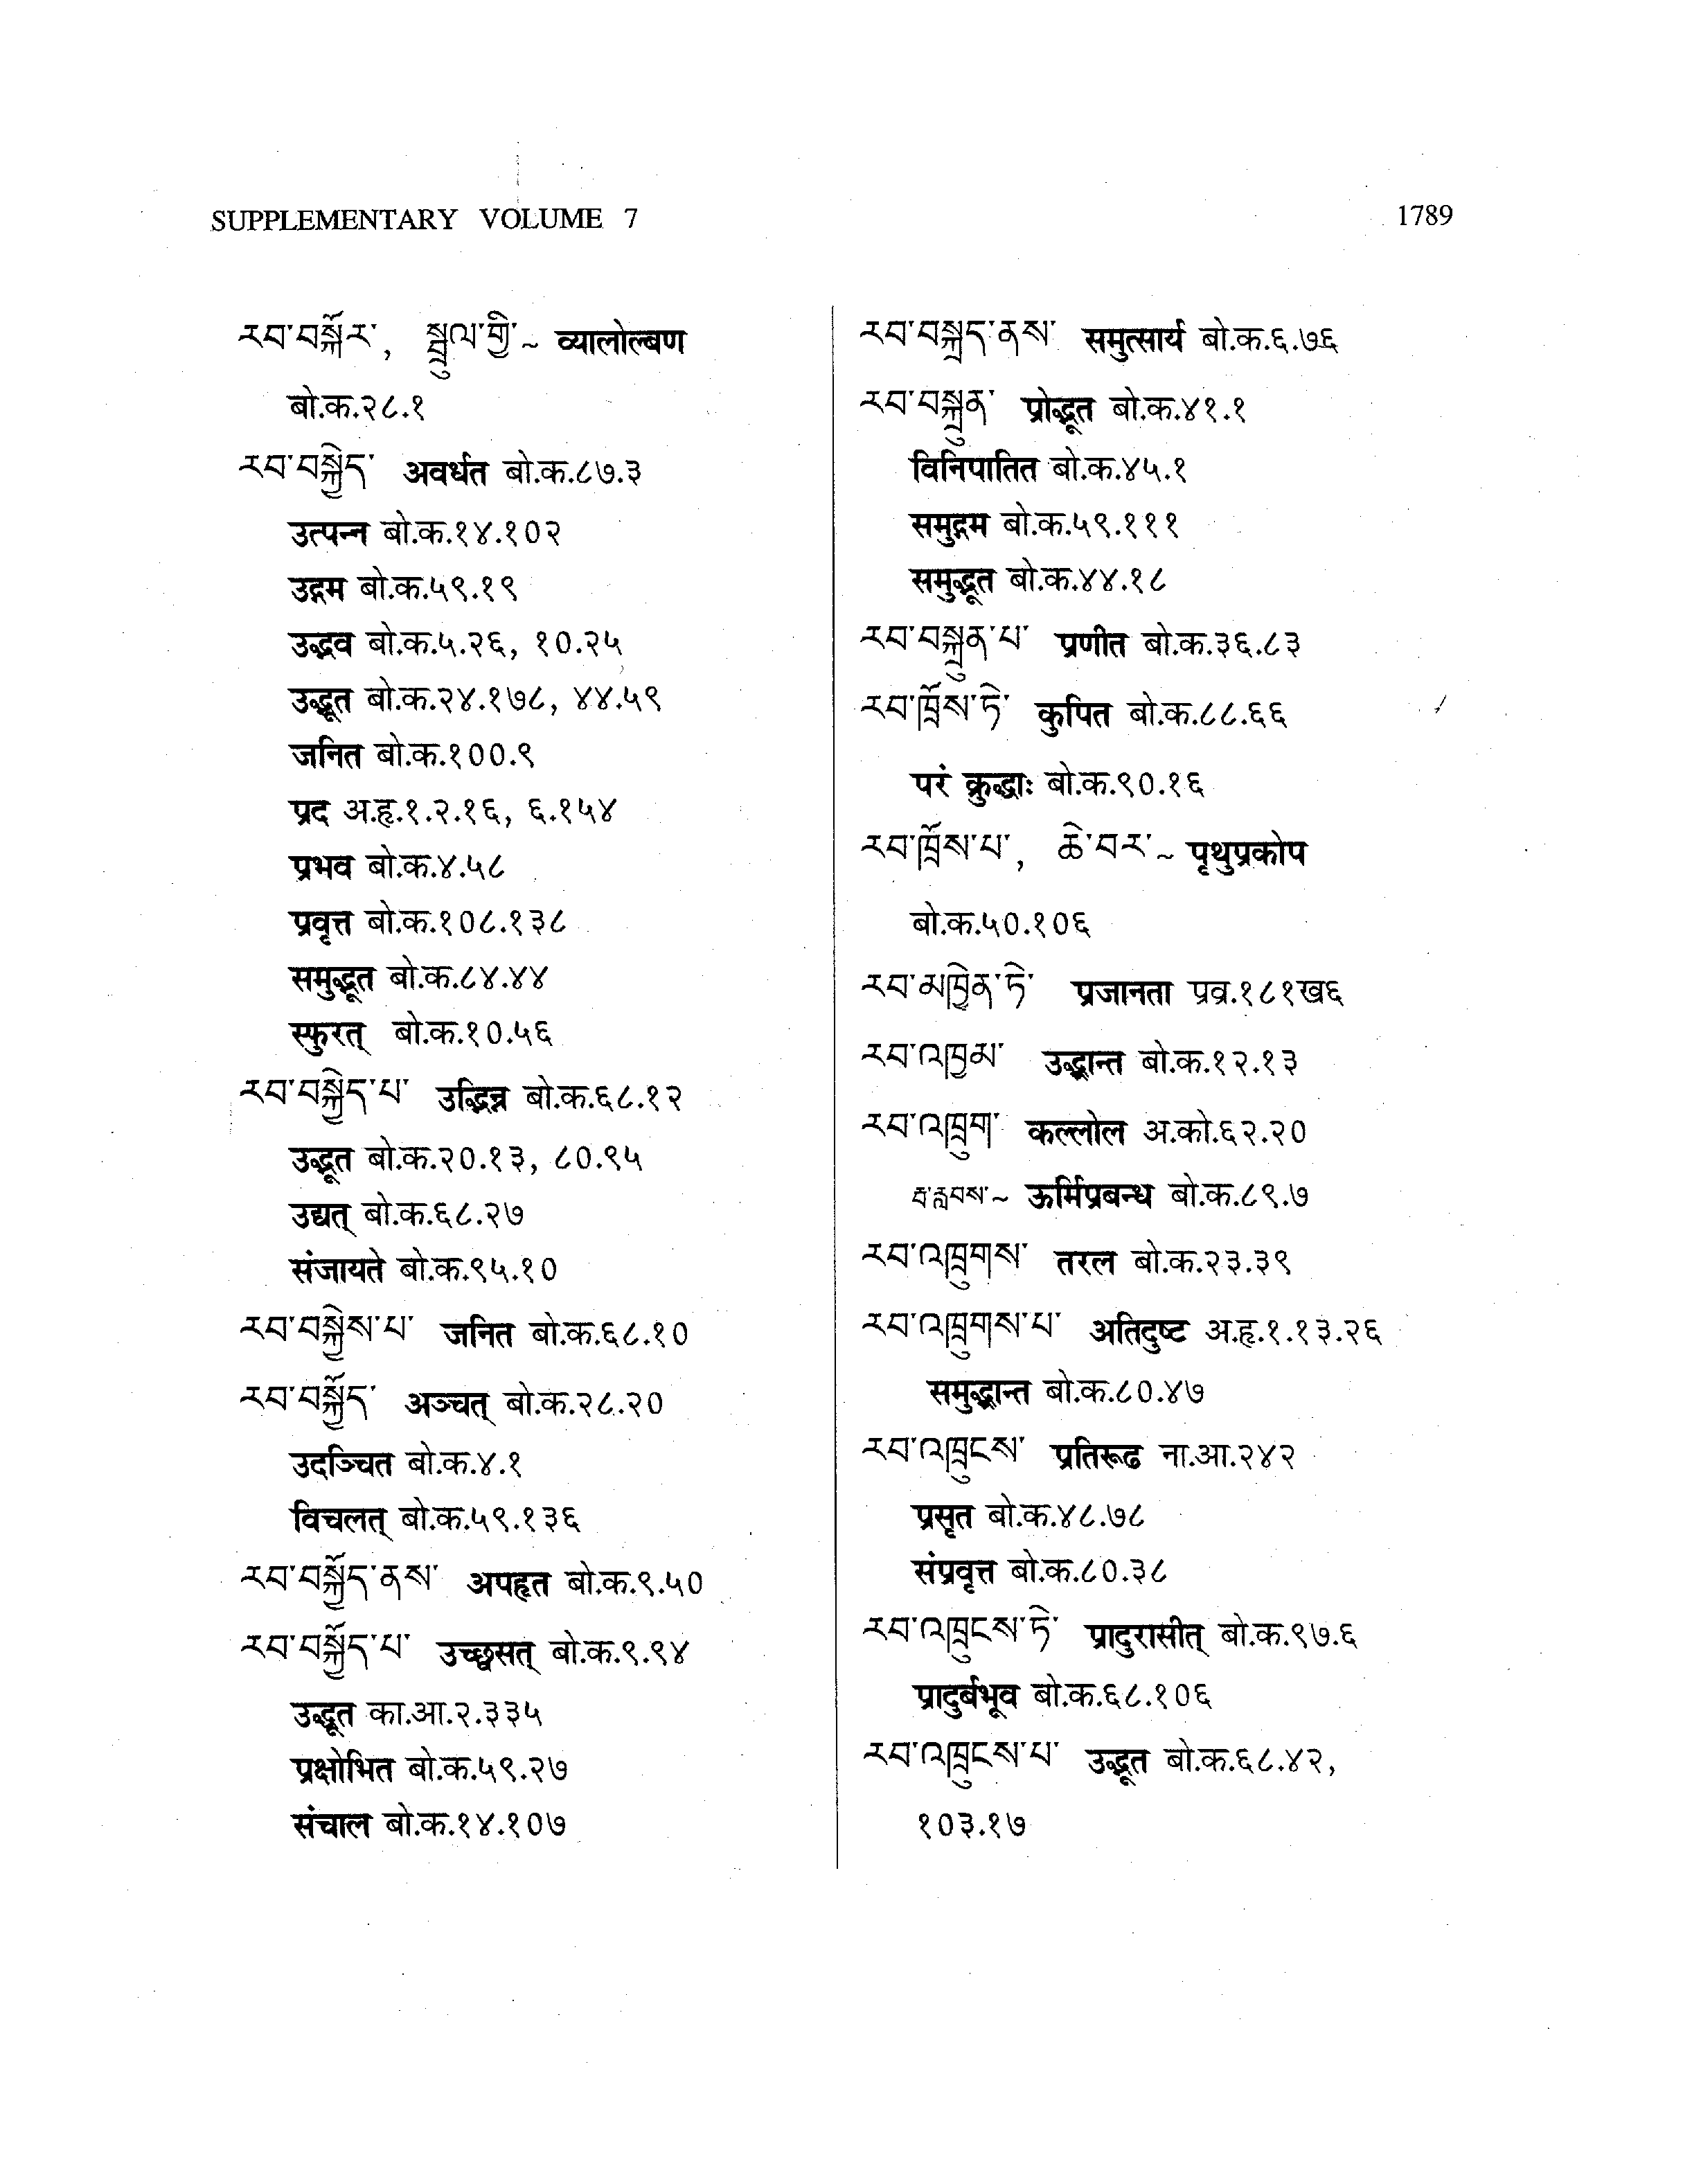 SUPPLEMENTARY VOLUME 7
1789
རབ་བསྐོར་, སྦྲུལ་གྱི་~ व्यालोल्बण
बो.क.२८.१
རབ་བསྐྱེད་ अवर्धत बो.क.८७.३
उत्पन्न बो.क.१४.१०२
उद्गम बो.क.५९.१९
उद्भव बो.क.५.२६, १०.२५
उद्भूत बो.क.२४.१७८, ४४.५९
जनित बो.क.१००.९
प्रद अ.हृ.१.२.१६, ६.१५४
प्रभव बो.क.४.५८
प्रवृत्त बो.क.१०८.१३८
समुद्भूत बो.क.८४.४४
स्फुरत् बो.क.१०.५६
རབ་བསྐྱེད་པ་ उद्भिन्न बो.क.६८.१२
उद्भूत बो.क.२०.१३, ८०.९५
उद्यत् बो.क.६८.२७
संजायते बो.क.९५.१०
རབ་བསྐྱེས་པ་ जनित बो.क.६८.१०
རབ་བསྐྱོད་ अञ्चत् बो.क.२८.२०
उदञ्चित बो.क.४.१
विचलत् बो.क.५९.१३६
རབ་བསྐྱོད་ནས་ अपहृत बो.क.९.५०
རབ་བསྐྱོད་པ་ उच्छ्वसत् बो.क.९.९४
उद्भूत का.आ.२.३३५
प्रक्षोभित बो.क.५९.२७
संचाल बो.क.१४.१०७
རབ་བསྐྲད་ནས་ समुत्सार्य बो.क.६.७६
རབ་བསྐྲུན་ प्रोद्भूत बो.क.४१.१
विनिपातित बो.क.४५.१
समुद्गम बो.क.५९.१११
समुद्भूत बो.क.४४.१८
རབ་བསྐྲུན་པ་ प्रणीत बो.क.३६.८३
རབ་ཁྲོས་ཏེ་ कुपित बो.क.८८.६६
परं क्रुद्धाः बो.क.९०.१६
རབ་ཁྲོས་པ་, ཆེ་བར་~ पृथुप्रकोप
बो.क.५०.१०६
རབ་མཁྱེན་ཏེ་ प्रजानता प्रव्र.१८१ख६
རབ་འཁྱམ་ उद्भ्रान्त बो.क.१२.१३
རབ་འཁྲུག་ कल्लोल अ.को.६२.२०
རྦ་རླབས་~ ऊर्मिप्रबन्ध बो.क.८९.७
རབ་འཁྲུགས་ तरल बो.क.२३.३९
རབ་འཁྲུགས་པ་ अतिदुष्ट अ.हृ.१.१३.२६
समुद्भ्रान्त बो.क.८०.४७
རབ་འཁྲུངས་ प्रतिरूढ ना.आ.२४२
प्रसृत बो.क.४८.७८
संप्रवृत्त बो.क.८०.३८
རབ་འཁྲུངས་ཏེ་ प्रादुरासीत् बो.क.९७.६
प्रादुर्बभूव बो.क.६८.१०६
རབ་འཁྲུངས་པ་ उद्भूत बो.क.६८.४२,
१०३.१७